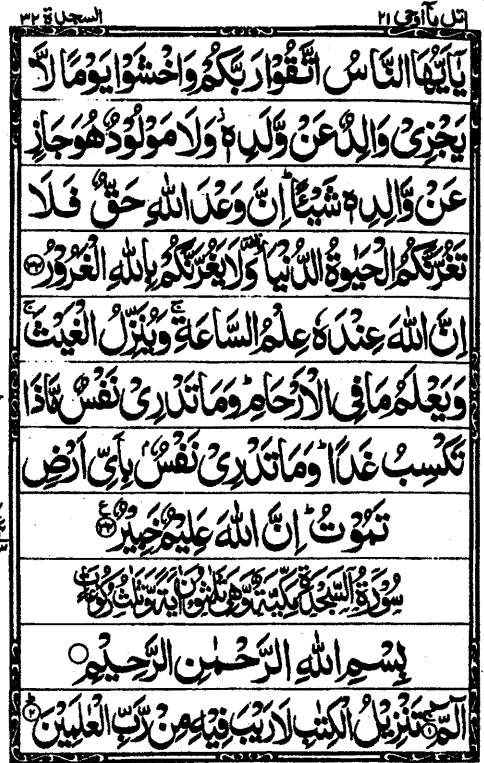 السجدة ۳۲ اتل مآ اوحی ۲۱
یٰۤاَیُّهَا النَّاسُ اتَّقُوْا رَبَّكُمْ وَاخْشَوْا یَوْمًا لَّا
یَجْزِیْ وَالِدٌ عَنْ وَّلَدِهٖ ۫ وَلَا مَوْلُوْدٌ هُوَ جَازٍ
عَنْ وَّالِدِهٖ شَیْـًٔا ؕ اِنَّ وَعْدَ اللّٰهِ حَقٌّ فَلَا
تَغُرَّنَّكُمُ الْحَیٰوةُ الدُّنْیَا ۥ وَلَا یَغُرَّنَّكُمْ بِاللّٰهِ الْغَرُوْرُ ۳۳
اِنَّ اللّٰهَ عِنْدَهٗ عِلْمُ السَّاعَةِ ۚ وَیُنَزِّلُ الْغَیْثَ ۚ
وَیَعْلَمُ مَا فِی الْاَرْحَامِ ؕ وَمَا تَدْرِیْ نَفْسٌ مَّاذَا
تَكْسِبُ غَدًا ؕ وَمَا تَدْرِیْ نَفْسٌۢ بِاَیِّ اَرْضٍ
تَمُوْتُ ؕ اِنَّ اللّٰهَ عَلِیْمٌ خَبِیْرٌ ۳۴
سُوْرَةُ السَّجْدَةِ مَكِّیَّةٌ وَّهِیَ ثَلٰثُوْنَ اٰیَةً وَّثَلٰثُ رُكُوْعَاتٍ
بِسْمِ اللّٰهِ الرَّحْمٰنِ الرَّحِیْمِ
الٓمّٓ ۱ تَنْزِیْلُ الْكِتٰبِ لَا رَیْبَ فِیْهِ مِنْ رَّبِّ الْعٰلَمِیْنَ ۲